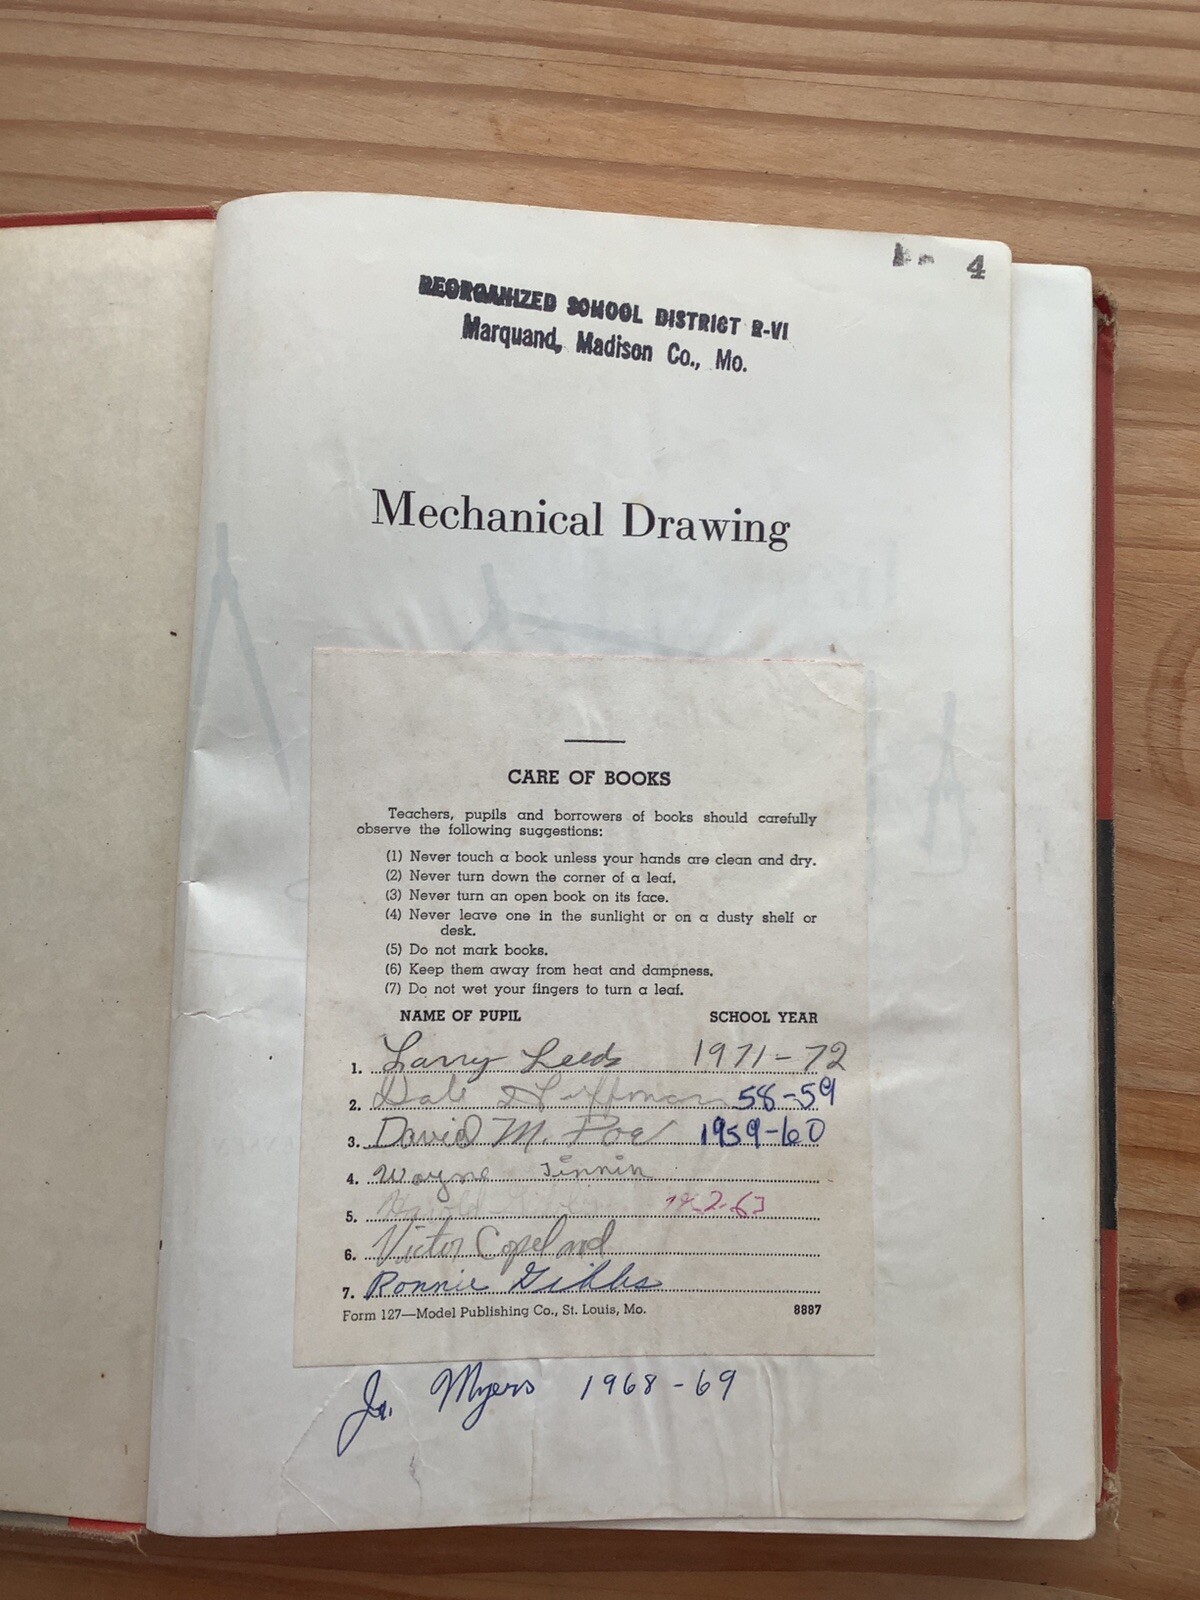 4
REORGANIZED SCHOOL DISTRICT R-VI
Marquand, Madison Co., Mo.
Mechanical Drawing
CARE OF BOOKS
Teachers, pupils and borrowers of books should carefully
observe the following suggestions:
(1) Never touch a book unless your hands are clean and dry.
(2) Never turn down the corner of a leaf.
(3) Never turn an open book on its face.
(4) Never leave one in the sunlight or on a dusty shelf or
desk.
(5) Do not mark books.
(6) Keep them away from heat and dampness.
(7) Do not wet your fingers to turn a leaf.
NAME OF PUPIL SCHOOL YEAR
1. Larry Leeds 1971-72
2. Dale 58-59
3. David M. Poe 1959-60
4. Wayne Tinnin
5. Harold
6. Victor Copeland
7. Ronnie Gibbs
Form 127—Model Publishing Co., St. Louis, Mo. 8887
Jr. Myers 1968-69